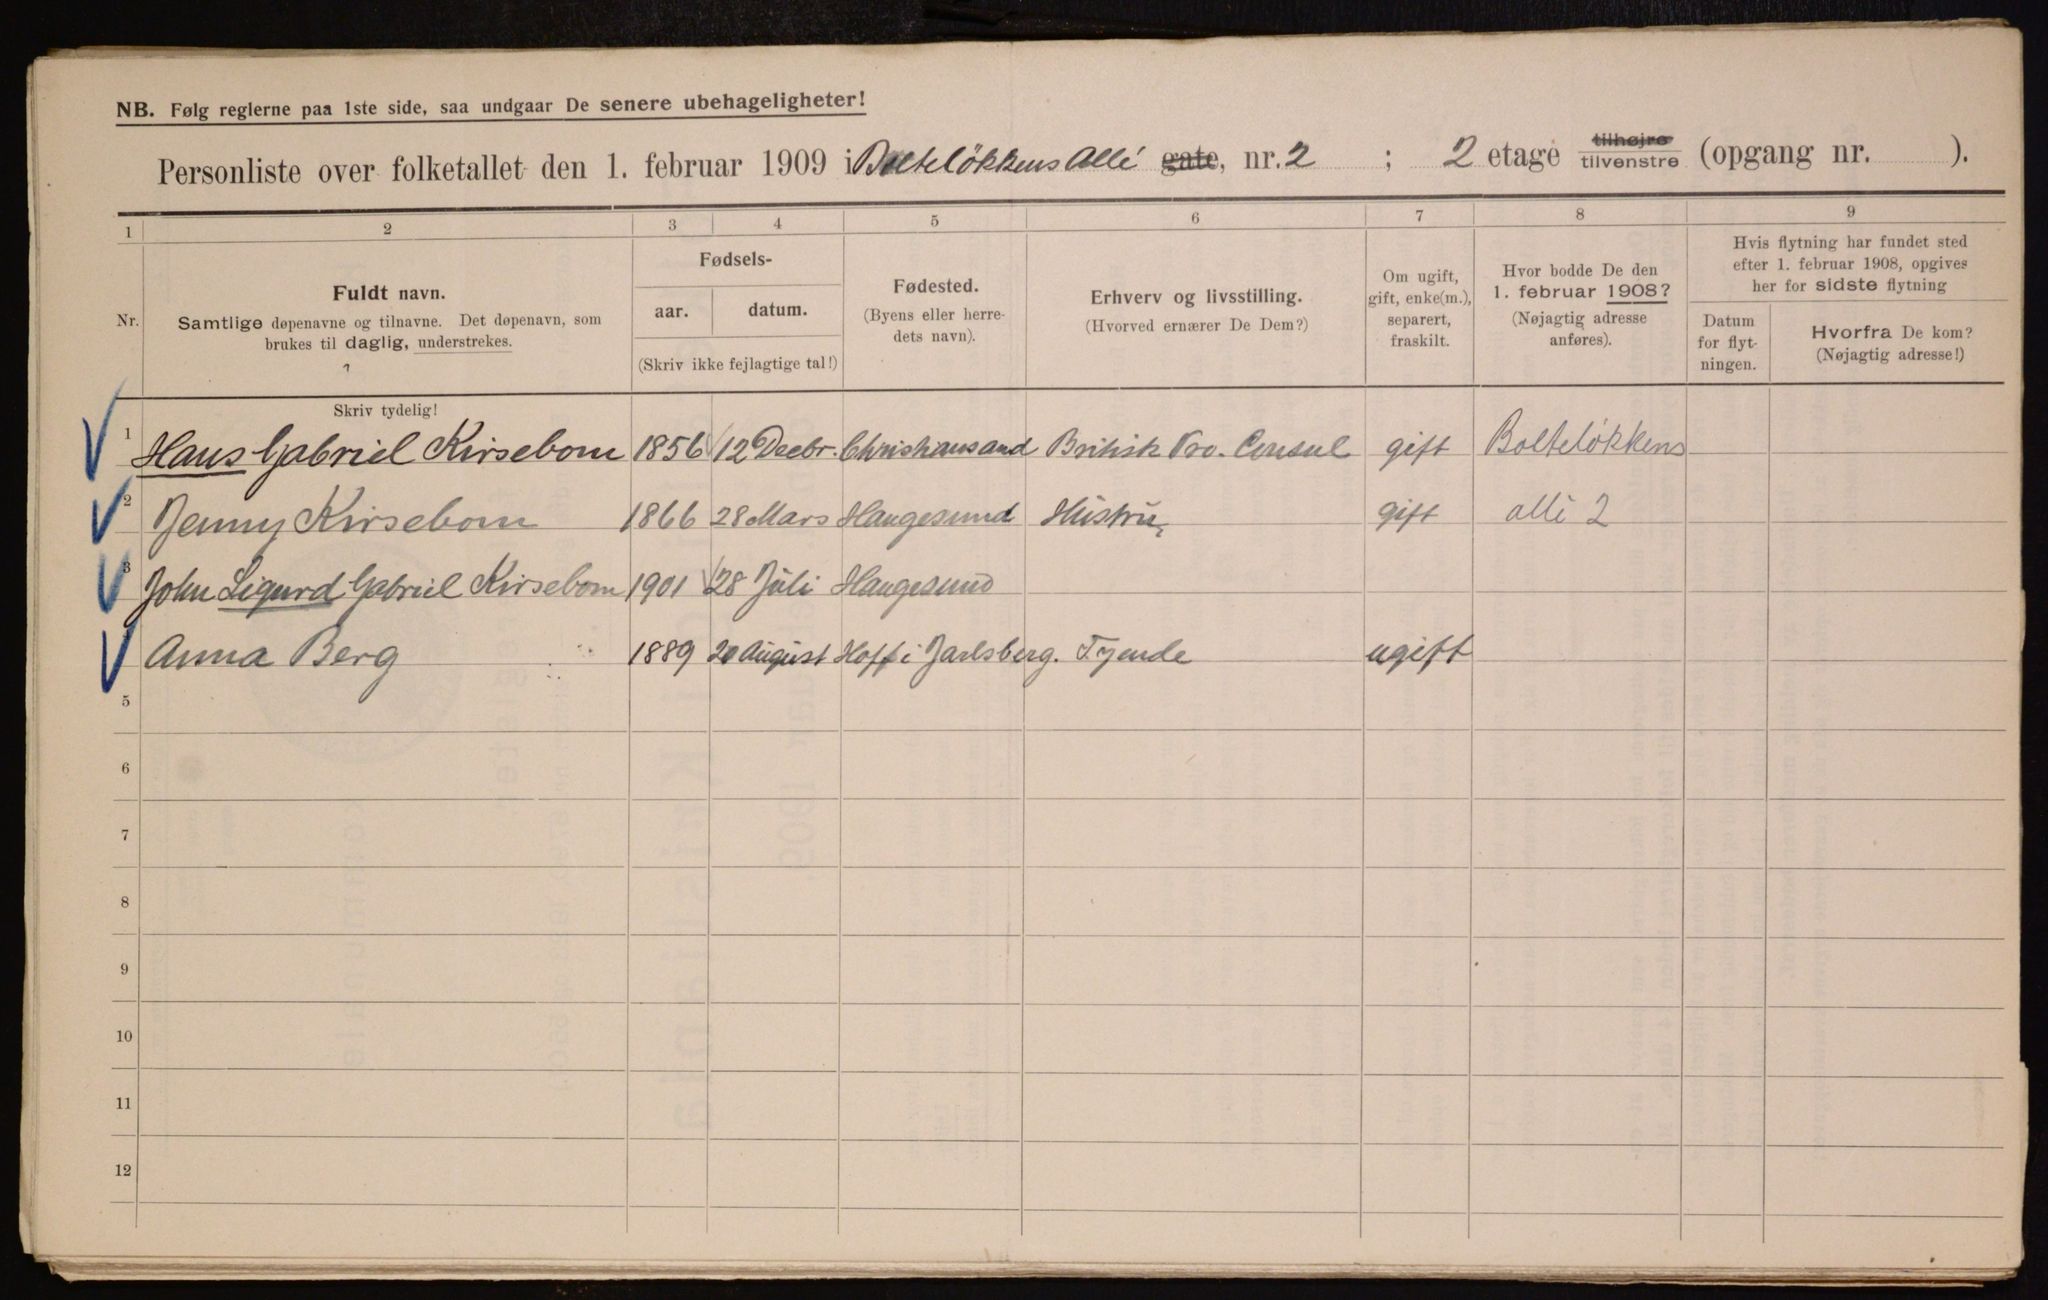 NB. Følg reglerne paa 1ste side, saa undgaar De senere ubehageligheter!
Personliste over folketallet den 1. februar 1909 i Bolteløkkens Allé gate, nr. 2 ; 2 etage tilhøjre tilvenstre (opgang nr. ).
1 2 3 4 5 6 7 8 9
Nr.
Fuldt navn.
Samtlige døpenavne og tilnavne. Det døpenavn, som
brukes til daglig, understrekes.
Fødsels-
aar. datum.
(Skriv ikke fejlagtige tal!)
Fødested.
(Byens eller herre-
dets navn).
Erhverv og livsstilling.
(Hvorved ernærer De Dem?)
Om ugift,
gift, enke(m.),
separert,
fraskilt.
Hvor bodde De den
1. februar 1908?
(Nøjagtig adresse
anføres).
Hvis flytning har fundet sted
efter 1. februar 1908, opgives
her for sidste flytning
Datum
for flyt-
ningen.
Hvorfra De kom?
(Nøjagtig adresse!)
Skriv tydelig!
1 Hans Gabriel Kirsebom 1856 12 Decbr. Christiansand Britisk Pro. Consul gift Bolteløkkens
2 Jenny Kirsebom 1866 28 Mars Haugesund Hustru gift alle 2
3 John Sigurd Gabriel Kirsebom 1901 28 Juli Haugesund
Anna Berg 1889 20 August Hoff i Jarlsberg. Tjende ugift
5
6
7
8
9
10
11
12